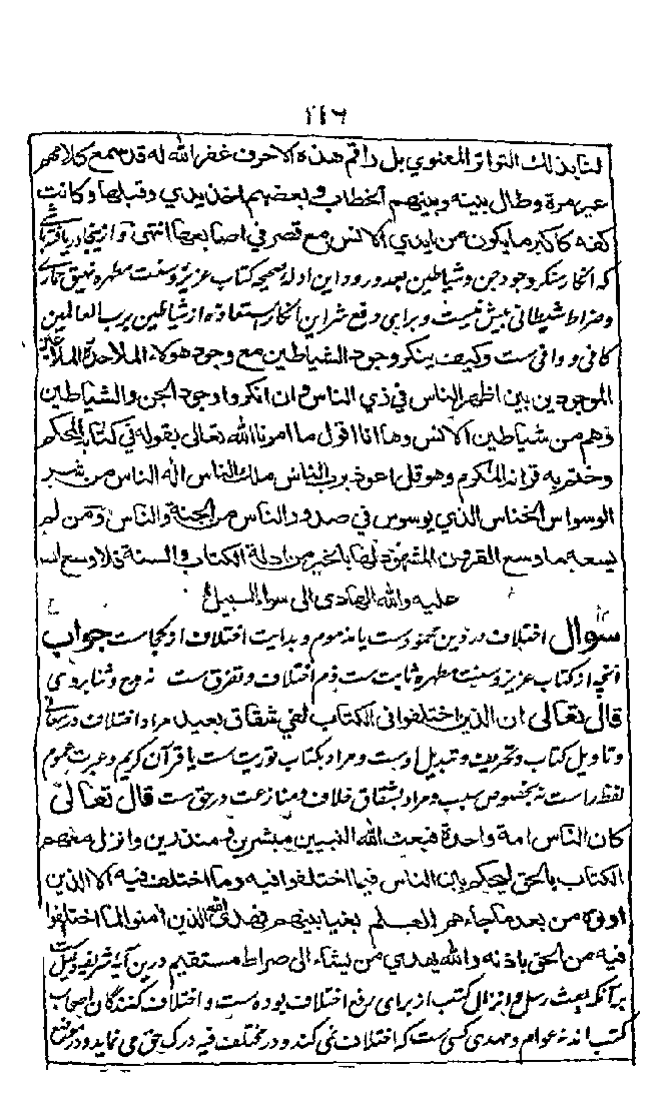 ۲۱۶
لنا بذلك التواتر المعنوي بل راقم هذه الاحرف غفر الله له قد سمع كلامهم
غير مرة وطال بينه وبينهم الخطاب وبعضهم اخذ يدي وقبلها وكانت
كفه كاكبر ما يكون من ايدي الانس مع قصر في اصابعها انتهى و ازينجا دريافته باشى
كه انكار منكر وجود جن و شياطين بعد ورود اين ادلهٔ صحيحه كتاب عزيز و سنت مطهره نهيق حماري
و ضراط شيطانى بيش نيست و براى دفع شر اين انكار استعاذه از شياطين برب العالمين
كافى و وافى ست وكيف ينكر وجود الشياطين مع وجود هؤلاء الملاحدة الملاعين
الموجودين بين اظهر الناس في زي الناس وان انكروا وجود الجن والشياطين
فهم من شياطين الانس وها انا اقول ما امرنا الله تعالى بقوله في كتابه المحكم
وختم به قرانه المكرم وهو قل اعوذ برب الناس ملك الناس اله الناس من شر
الوسواس الخناس الذي يوسوس في صدور الناس من الجنة والناس ومن لم
يسعه ما وسع القرون المشهود لها بالخير من ادلة الكتاب والسنة فلا وسع الله
عليه والله الهادى الى سواء السبيل
سوال اختلاف در دين محمود ست يا مذموم و بدايت اختلاف از كجاست جواب
آنچه از كتاب عزيز و سنت مطهره ثابت ست ذم اختلاف و تفرق ست نه مدح و ثنا بروى
قال تعالى ان الذين اختلفوا فى الكتاب لفي شقاق بعيد مراد اختلاف در معانى
و تاويل كتاب و تحريف و تبديل اوست و مراد بكتاب توريت ست يا قرآن كريم و عبرت بعموم
لفظ راست نه بخصوص سبب و مراد بشقاق خلاف و منازعت در حق ست قال تعالى
كان الناس امة واحدة فبعث الله النبيين مبشرين ومنذرين وانزل معهم
الكتاب بالحق ليحكم بين الناس فيما اختلفوا فيه وما اختلف فيه الا الذين
اوتوه من بعد ما جاءهم العلم بغيا بينهم فهدى الله الذين آمنوا لما اختلفوا
فيه من الحق باذنه والله يهدي من يشاء الى صراط مستقيم درين آيهٔ شريفه دليل ست
بر آنكه بعث رسل و انزال كتب از براى رفع اختلاف بوده ست و اختلاف كنندگان اصحاب
كتب اند نه عوام و مهدى كسى ست كه اختلاف نمى كند و در مختلف فيه درك حق مى نمايد و در